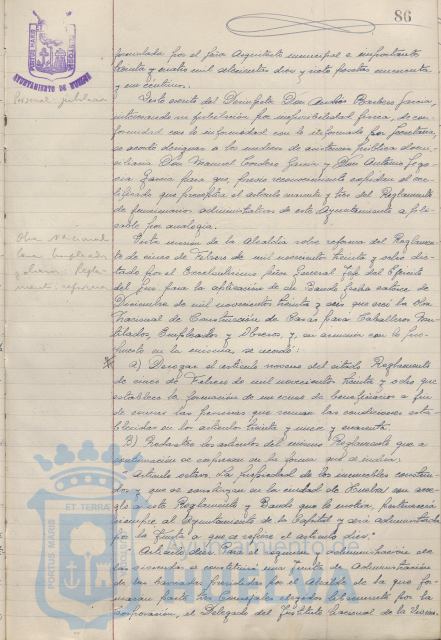 86
PORTUS MARIS
AYUNTAMIENTO DE HUELVA
Personal jubilacion
formulada por el Sr. Arquitecto municipal e importante
treinta y cuatro mil setecientas dos y ocho pesetas cuarenta
y un céntimos.
Visto escrito del Don Andrés Barbero Garcia,
interesando su jubilación por imposibilidad fisica, de con-
formidad con lo informado por Secretaria,
se acordó designar a los médicos de asistencia pública domi-
ciliaria Don Manuel Cordero Garcia y Don Antonio
Garcia para que, previo reconocimiento expidan el cer-
tificado que preceptua el articulo noventa y tres del Reglamento
de funcionarios administrativos de este Ayuntamiento apli-
cable por analogia.
Obra Nacional
Casas Empleados
y Obreros. Regla-
mento reforma
Vista moción de la Alcaldia sobre reforma del Reglamen-
to de cinco de Febrero de mil novecientos treinta y ocho dic-
tado por el Excelentisimo Señor General Jefe del Ejército
del Sur para la aplicación de su Bando fecha catorce de
Diciembre de mil novecientos treinta y seis que creó la Obra
Nacional de Construcción de Casas para Caballeros Mu-
tilados, Empleados y Obreros, y, en armonia con lo pro-
puesto en la misma, se acordó:
a) Derogar el articulo noveno del citado Reglamento
de cinco de Febrero de mil novecientos treinta y ocho que
establece la formación de un censo de beneficiarios a fin
de conocer las personas que reunan las condiciones esta-
blecidas en los articulos treinta y nueve y cuarenta.
B) Redactar los articulos del mismo Reglamento que a
continuación se expresan en la forma que se indica:
Articulo octavo. La propiedad de los inmuebles construi-
dos y que se construyan en la ciudad de Huelva con arre-
glo a este Reglamento y Bando que lo motiva, pertenecerá
siempre al Ayuntamiento de la Capital y será administrada
por la Junta a que se refiere el articulo diez."
Articulo diez. Para el regimen y administración de
las viviendas se constituirá una Junta de Administración
de las barriadas presidida por el Alcalde de la que for-
marán parte tres Concejales elegidos libremente por la
Corporación, el Delegado del Instituto Nacional de la Vivien-
ET TERRÆ
PORTUS MARIS
Ayuntamiento de